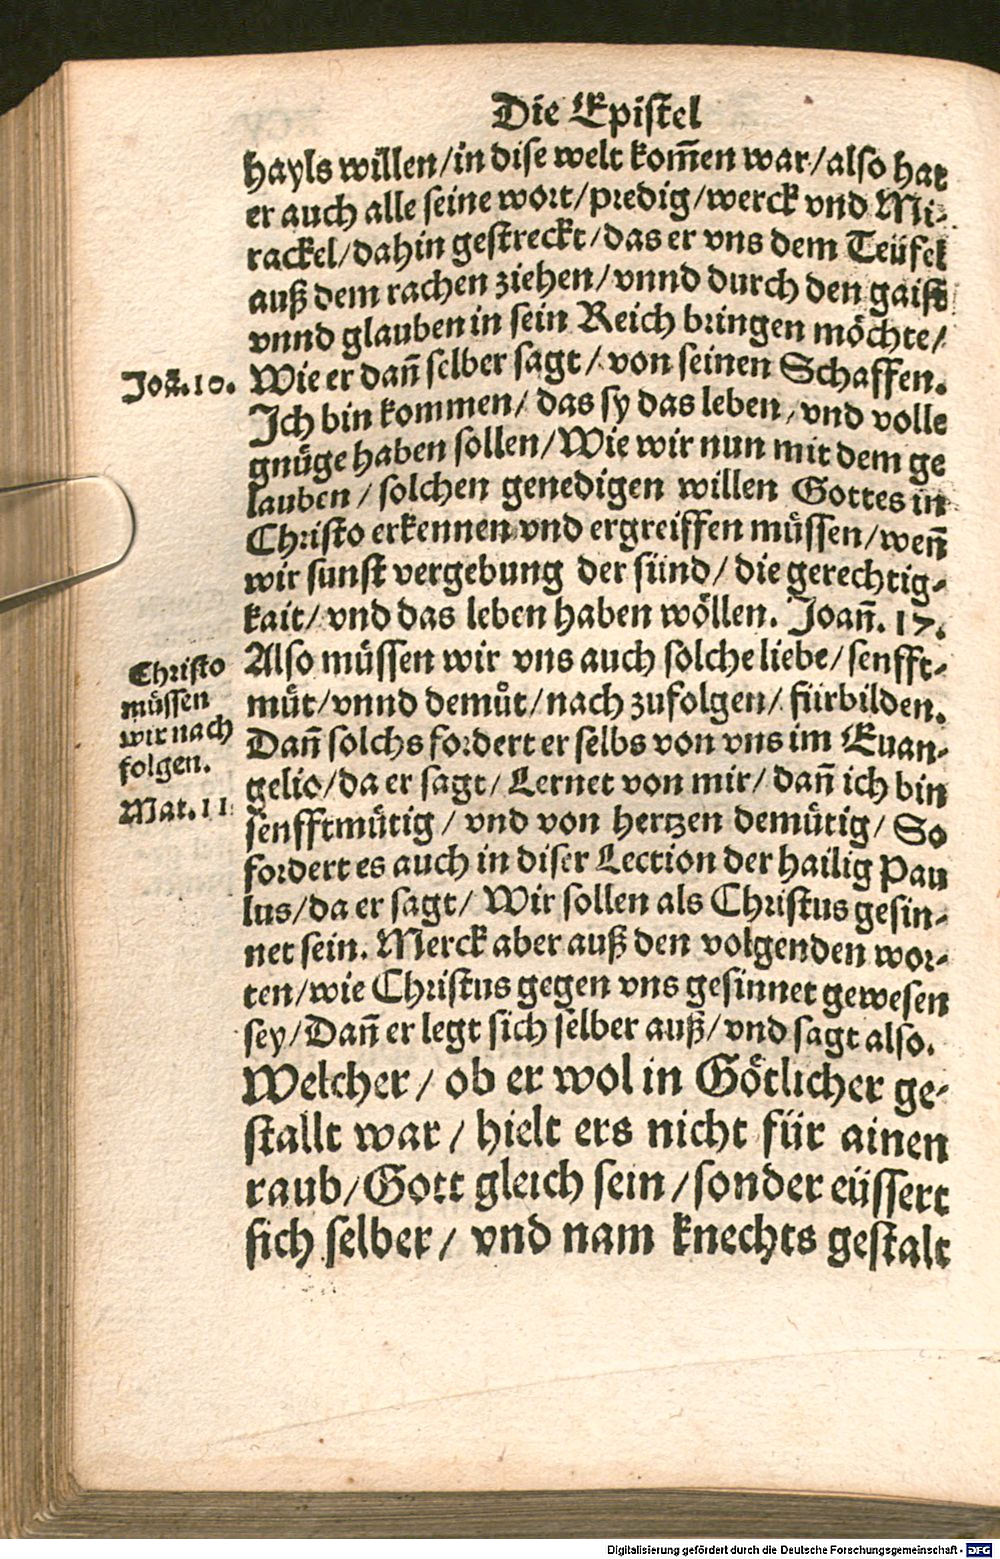 Die Epistel
hayls willen/in dise welt kom̃en war/also hat
er auch alle seine wort/predig/werck vnd Mi-
rackel/dahin gestreckt/das er vns dem Teüfel
auß dem rachen ziehen/vnnd durch den gaist
vnnd glauben in sein Reich bringen möchte/
Joã.10. Wie er dañ selber sagt/von seinen Schaffen.
Ich bin kommen/das sy das leben/vnd volle
gnuͤge haben sollen/Wie wir nun mit dem ge
lauben/solchen genedigen willen Gottes in
Christo erkennen vnd ergreiffen muͤssen/weñ
wir sunst vergebung der sünd/die gerechtig-
kait/vnd das leben haben wöllen. Joañ.17.
Christo
muͤssen
wir nach
folgen.
Mat.11
Also muͤssen wir vns auch solche liebe/senfft-
muͤt/vnnd demuͦt/nach zufolgen/fürbilden.
Dañ solchs fordert er selbs von vns im Euan-
gelio/da er sagt/Lernet von mir/dañ ich bin
senfftmuͤtig/vnd von hertzen demuͤtig/So
fordert es auch in diser Lection der hailig Pau
lus/da er sagt/Wir sollen als Christus gesin-
net sein. Merck aber auß den volgenden wor-
ten/wie Christus gegen vns gesinnet gewesen
sey/Dañ er legt sich selber auß/vnd sagt also.
Welcher/ob er wol in Götlicher ge-
stallt war/hielt ers nicht für ainen
raub/Gott gleich sein/sonder eüssert
sich selber/vnd nam knechts gestalt
Digitalisierung gefördert durch die Deutsche Forschungsgemeinschaft - DFG